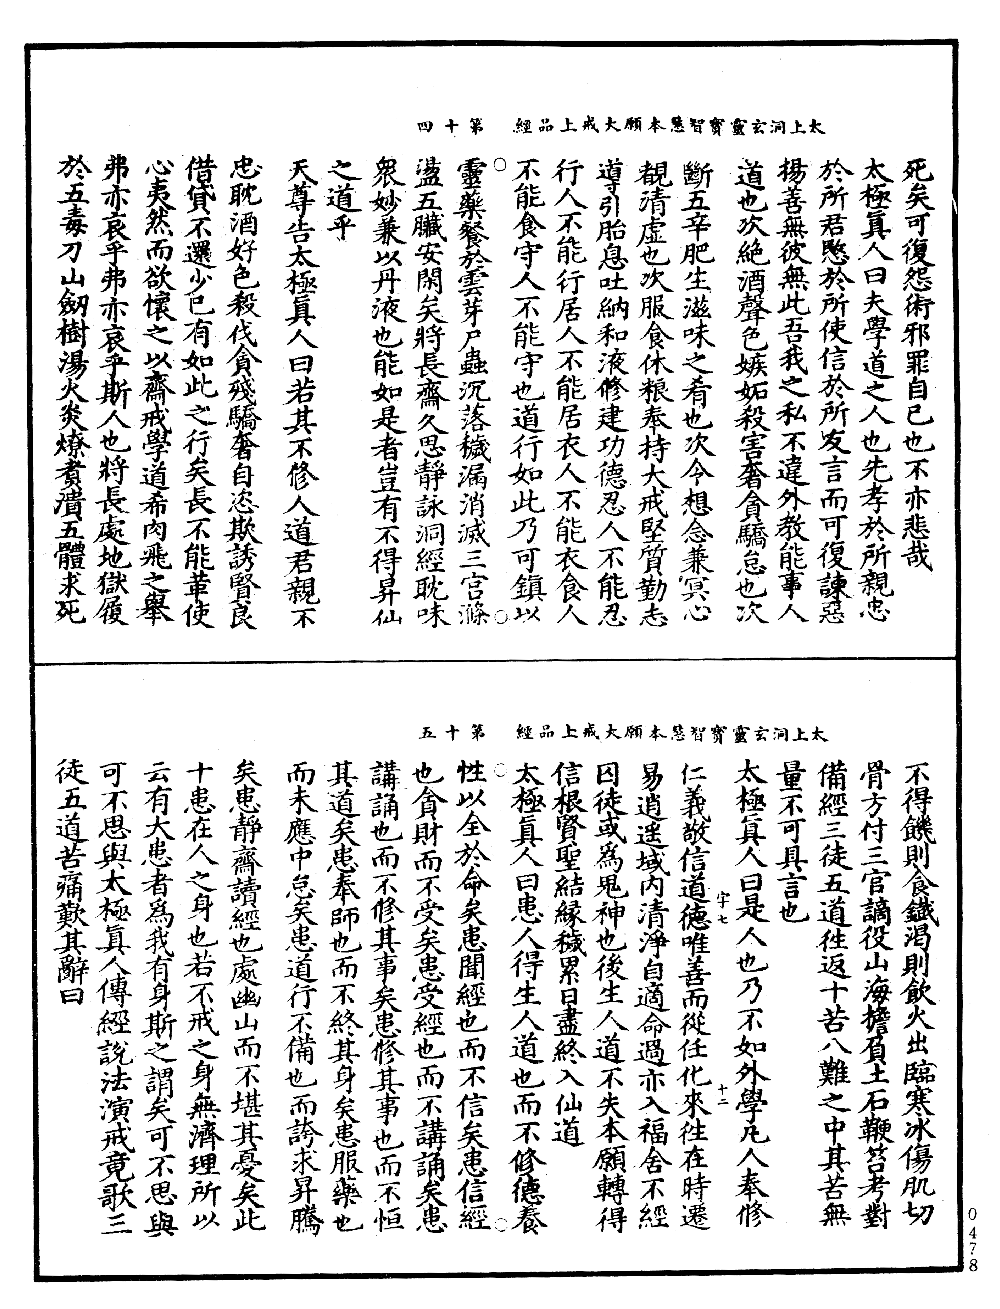 太上洞玄靈寳智慧本願大戒上品經　第十四
死矣可復怨術邪罪自已也不亦悲哉
太極真人曰夫學道之人也先孝於所親忠
於所君愍於所使信於所友言而可復諫惡
揚善無彼無此吾我之私不違外教能事人
道也次絶酒聲色嫉妬殺害奢貪驕怠也次
斷五辛肥生滋味之肴也次令想念兼冥心
覩清虚也次服食休粮奉持大戒堅質勤志
導引胎息吐納和液修建功德忍人不能忍
行人不能行居人不能居衣人不能衣食人
不能食守人不能守也道行如此乃可鎮以
靈藥餐於雲芽尸蟲沉落穢漏消滅三宫滌
盪五臟安閑矣將長齋久思靜詠洞經耽味
衆妙兼以丹液也能如是者豈有不得昇仙
之道乎
天尊告太極真人曰若其不修人道君親不
忠耽酒好色殺伐貪殘驕奢自恣欺誘賢良
借貸不還少已有如此之行矣長不能革使
心夷然而欲懷之以齋戒學道希肉飛之舉
弗亦哀乎弗亦哀乎斯人也將長處地獄履
於五毒刀山劒樹湯火炎燎煑潰五體求死
太上洞玄靈寳智慧本願大戒上品經　第十五
不得饑則食鐵渴則飲火出臨寒冰傷肌切
骨方付三官謫役山海擔負土石鞭笞考對
備經三徒五道徃返十苦八難之中其苦無
量不可具言也
太極真人曰是人也乃不如外學凡人奉修
仁義敬信道德唯善而從任化來徃在時遷
字七
十二
易逍遥域内清淨自適命過亦入福舍不經
囚徒或爲鬼神也後生人道不失本願轉得
信根賢聖結縁穢累日盡終入仙道
太極真人曰患人得生人道也而不修德養
性以全於命矣患聞經也而不信矣患信經
也貪財而不受矣患受經也而不講誦矣患
講誦也而不修其事矣患修其事也而不恒
其道矣患奉師也而不終其身矣患服藥也
而未應中怠矣患道行不備也而誇求昇騰
矣患靜齋讀經也處幽山而不堪其憂矣此
十患在人之身也若不戒之身無濟理所以
云有大患者爲我有身斯之謂矣可不思與
可不思與太極真人傳經説法演戒竟歌三
徒五道苦痛歎其辭曰
0478